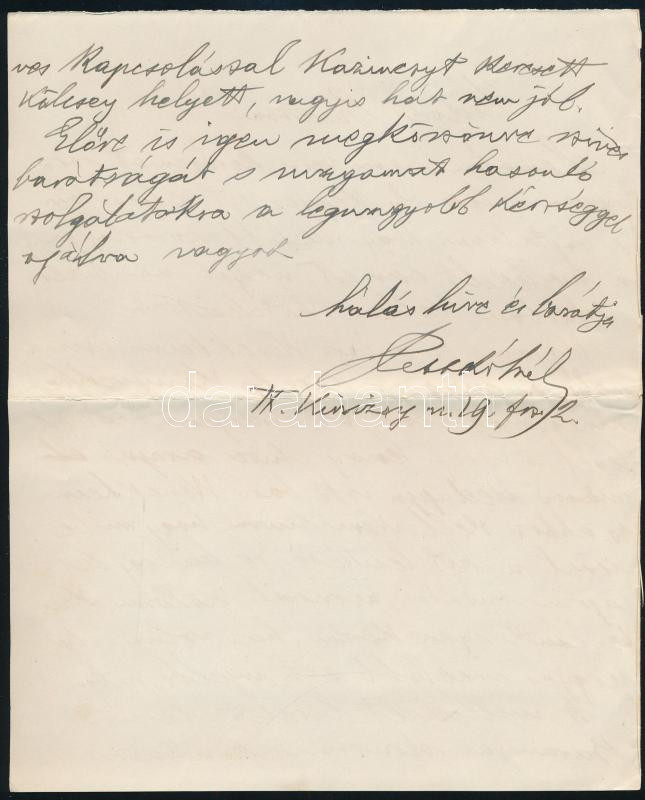 vos kapcsolással Kazinczyt keresett
Kölcsey helyett, vagyis hát nem jól.
Előre is igen megköszönve szíves
barátságát s magamat hasonló
szolgálatokra a legnagyobb készséggel
ajálva vagyok
hálás híve és barátja
IX. Kinizsy u. 19. fsz. 2.
darabanth